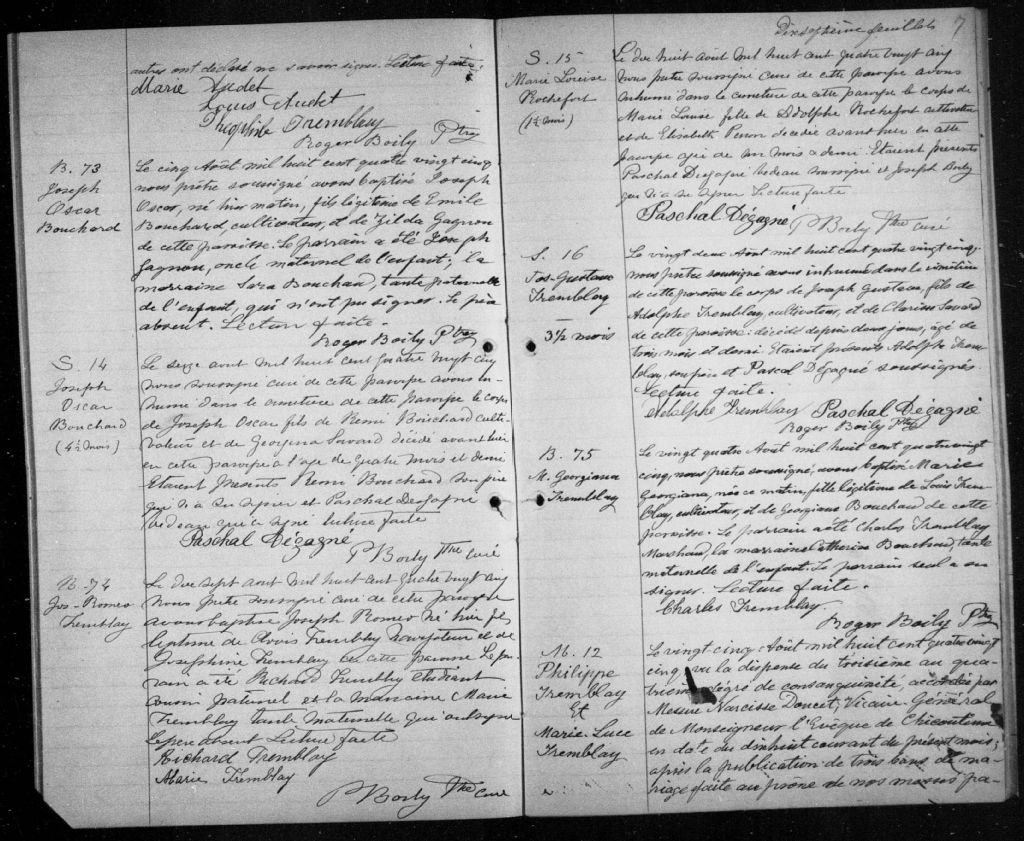 autres ont déclaré ne savoir signer. Lecture faite.
Marie Audet
Louis Audet
Théophile Tremblay
Roger Boily Ptre
B. 73
Joseph
Oscar
Bouchard
Le cinq Août mil huit cent quatre vingt cinq
nous prêtre soussigné avons baptisé Joseph
Oscar, né hier matin, fils légitime de Emile
Bouchard, cultivateur, et de Zilda Gagnon
de cette paroisse. Le parrain a été Joseph
Gagnon, oncle maternel de l'enfant; la
marraine Sara Bouchard, tante paternelle
de l'enfant, qui n'ont pu signer. Le père
absent. Lecture faite.
Roger Boily Ptre
S. 14
Joseph
Oscar
Bouchard
(4½ mois)
Le seize aout mil huit cent quatre vingt cinq
nous soussigné curé de cette paroisse avons in-
humé dans le cimetière de cette paroisse le corps
de Joseph Oscar fils de Rémi Bouchard culti-
vateur et de Georgina Savard décédé avant hier
en cette paroisse à l'age de quatre mois et demi
Etaient présents Rémi Bouchard son père
qui n'a su signer et Paschal Degagné
bedeau qui a signé lecture faite
Paschal Dégagné
P Boily Ptre curé
B. 74
Jos-Romeo
Tremblay
Le dix sept aout mil huit cent quatre vingt cinq
nous prêtre soussigné curé de cette paroisse
avons baptisé Joseph Romeo né hier fils
légitime de Tremblay navigateur et de
Joséphine Tremblay de cette paroisse Le par-
rain a été Richard Tremblay étudiant
cousin paternel et la marraine Marie
Tremblay tante maternelle qui ont signé
le père absent Lecture faite
Richard Tremblay
Marie Tremblay
P Boily Ptre curé
Dixseptième feuillets 7
S. 15
Marie Louise
Rochefort
(1½ mois)
Le dix huit aout mil huit cent quatre vingt cinq
nous prêtre soussigné curé de cette paroisse avons
inhumé dans le cimetière de cette paroisse le corps de
Marie Louise fille de Adolphe Rochefort cultivateur
et de Elisabeth Perron décédée avant hier en cette
paroisse agée de un mois et demi. Etaient présents
Paschal Degagné bedeau soussigné et Joseph Boily
qui n'a su signer Lecture faite
Paschal Dégagné
P Boily Ptre curé
S. 16
Jos-Gustave
Tremblay
3½ mois
Le vingt deux Août mil huit cent quatre vingt cinq,
nous prêtre soussigné avons inhumé dans le cimetière
de cette paroisse le corps de Joseph Gustave, fils de
Adolphe Tremblay, cultivateur, et de Clarisse Savard
de cette paroisse: décédé depuis deux jours, âgé de
trois mois et demi. Etaient présents Adolph Trem-
blay, son père et Pascal Dégagné soussignés.
Lecture faite.
Adolphe Tremblay Paschal Dégagné
Roger Boily Ptre
B. 75
M. Georgiana
Tremblay
Le vingt quatre Août mil huit cent quatre vingt
cinq, nous prêtre soussigné, avons baptisé Marie
Georgiana, née ce matin, fille légitime de Louis Trem-
blay, cultivateur, et de Georgiana Bouchard de cette
paroisse. Le parrain a été Charles Tremblay
Marchand, la marraine Catherine Bouchard, tante
maternelle de l'enfant. Le parrain seul a su
signer. Lecture faite.
Charles Tremblay
Roger Boily Ptre
M. 12
Philippe
Tremblay
Et
Marie Luce
Tremblay
Le vingt cinq Août mil huit cent quatre vingt
cinq vu la dispense du troisième au qua-
trième dégré de consanguinité, accordée par
Messire Narcisse Doucet, Vicaire-Général
de Monseigneur l'Evêque de Chicoutimi
en date du dixhuit courant du présent mois;
après la publication de trois bans de ma-
riage faite au prône de nos messes pa-